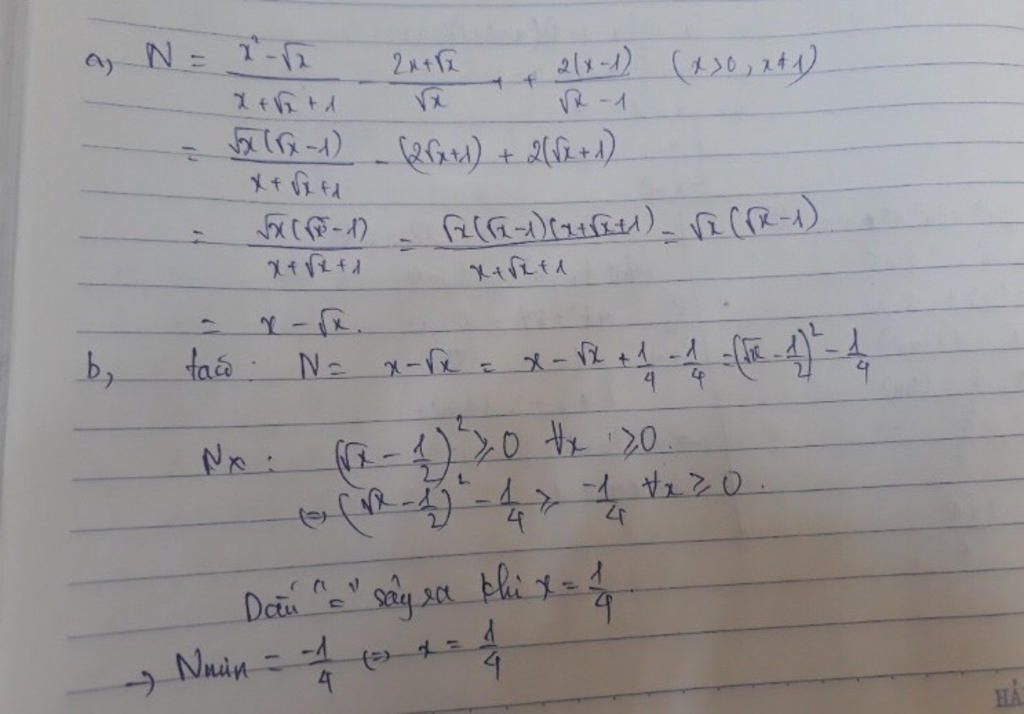 a, N = (x² - √x)/(x + √x + 1) - (2x + √x)/√x + + 2(x - 1)/(√x - 1) (x > 0, x ≠ 1)
= √x(√x - 1)/(x + √x + 1) - (2√x + 1) + 2(√x + 1)
= √x(√x³ - 1)/(x + √x + 1) = √x(√x - 1)(x + √x + 1)/(x + √x + 1) = √x(√x - 1)
= x - √x.
b, ta có : N = x - √x = x - √x + 1/4 - 1/4 = (√x - 1/2)² - 1/4
Nx : (√x - 1/2)² ≥ 0 ∀x ≥ 0.
⇔ (√x - 1/2)² - 1/4 ≥ -1/4 ∀x ≥ 0.
Dấu "=" sảy ra khi x = 1/4.
→ Nmin = -1/4 ⇔ x = 1/4
HẢ